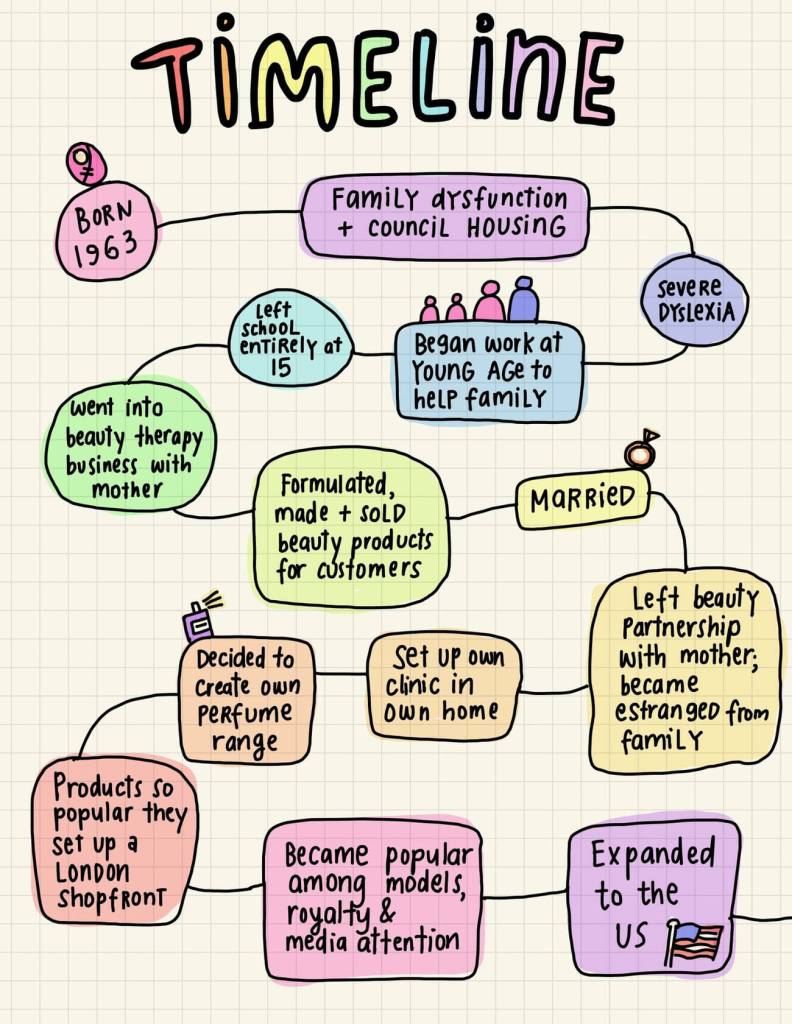 TIMELINE
BORN
1963
Family dysfunction
+ council HOUSING
Severe
DYSLEXIA
Began work at
YOUNG AGE to
help family
Left
school
entirely at
15
Went into
beauty therapy
business with
mother
Formulated,
made + SOLD
beauty products
for customers
MARRIED
Left beauty
Partnership
with mother;
became
estranged from
family
Set up own
clinic in
own home
Decided to
create own
perfume
range
Products so
popular they
set up a
LONDON
shopfront
Became popular
among models,
royalty &
media attention
Expanded
to the
US